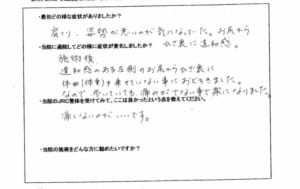 ・最初どの様な症状がありましたか？
肩こり、姿勢が悪いのが気になってた。お尻から
ひざ裏に違和感。
・当院に通院してどの様に症状が変化しましたか？
施術後
違和感のある左側のお尻からひざ裏に
体重(体重)を乗せていない事におどろきました。
なので歩いていても、痛みがでない事で楽になりました。
・当院のJRC整体を受けてみて、ここは良かったという点を教えてください。
痛くないのがいいです。
・当院の施術をどんな方に勧めたいですか？